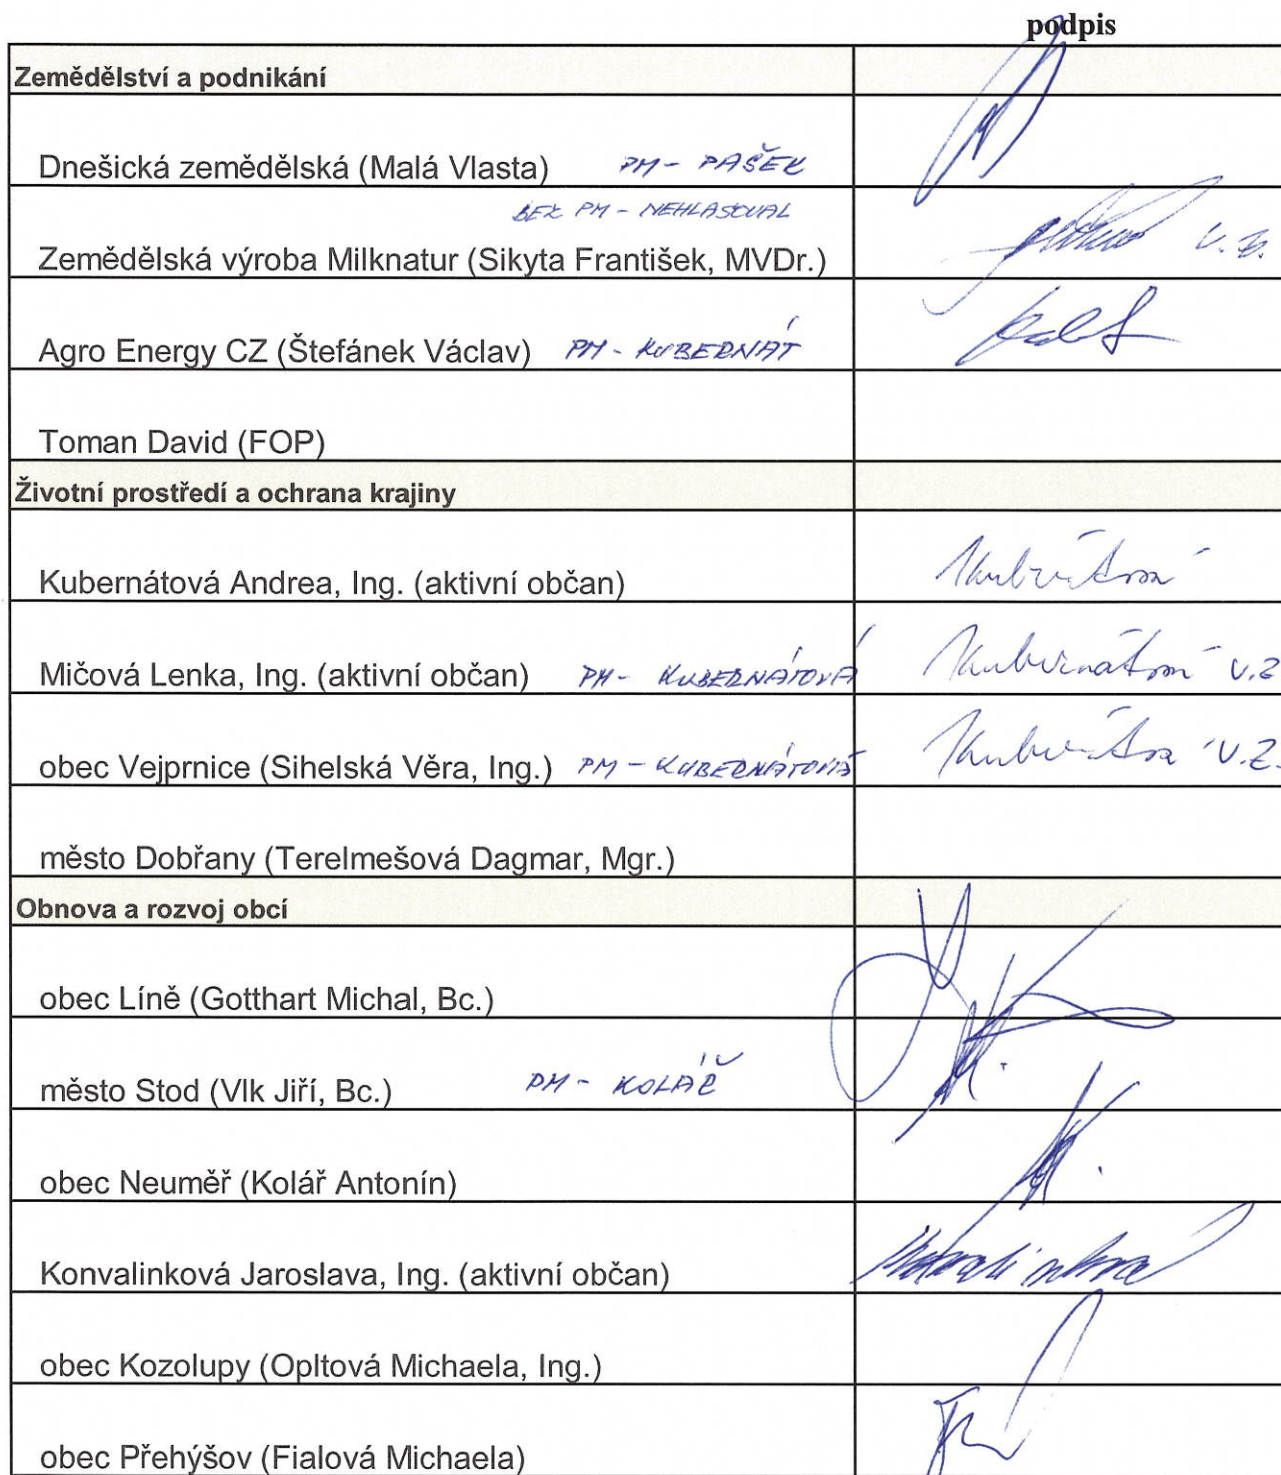 podpis
Zemědělství a podnikání
Dnešická zemědělská (Malá Vlasta) PM - PAŠEK
BEZ PM - NEHLASOVAL
Zemědělská výroba Milknatur (Sikyta František, MVDr.) v. z.
Agro Energy CZ (Štefánek Václav) PM - KUBERNÁT
Toman David (FOP)
Životní prostředí a ochrana krajiny
Kubernátová Andrea, Ing. (aktivní občan) Kubernátová
Mičová Lenka, Ing. (aktivní občan) PM - KUBERNÁTOVÁ Kubernátová v.z
obec Vejprnice (Sihelská Věra, Ing.) PM - KUBERNÁTOVÁ Kubernátová v.z.
město Dobřany (Terelmešová Dagmar, Mgr.)
Obnova a rozvoj obcí
obec Líně (Gotthart Michal, Bc.)
město Stod (Vlk Jiří, Bc.) PM - KOLÁŘ
obec Neuměř (Kolář Antonín)
Konvalinková Jaroslava, Ing. (aktivní občan) Konvalinková
obec Kozolupy (Opltová Michaela, Ing.)
obec Přehýšov (Fialová Michaela)